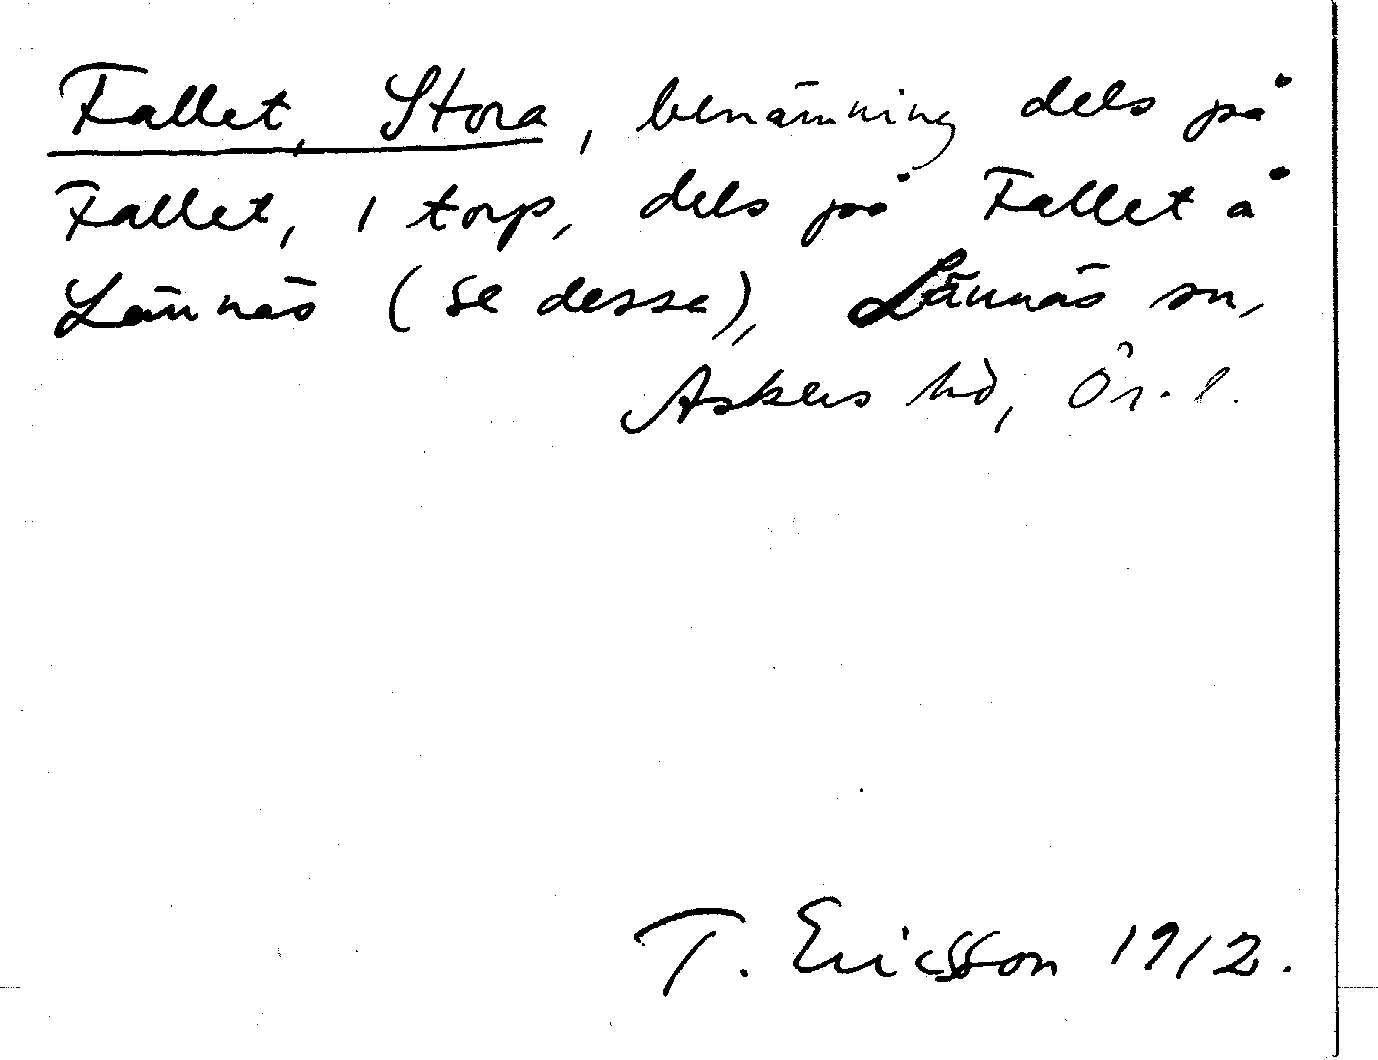 Fallet, Stora, benämning dels på
Fallet, 1 torp, dels på Fallet å
Lännäs (se dessa), Lännäs sn,
Askers hd, Ör. l.
T. Ericsson 1912.